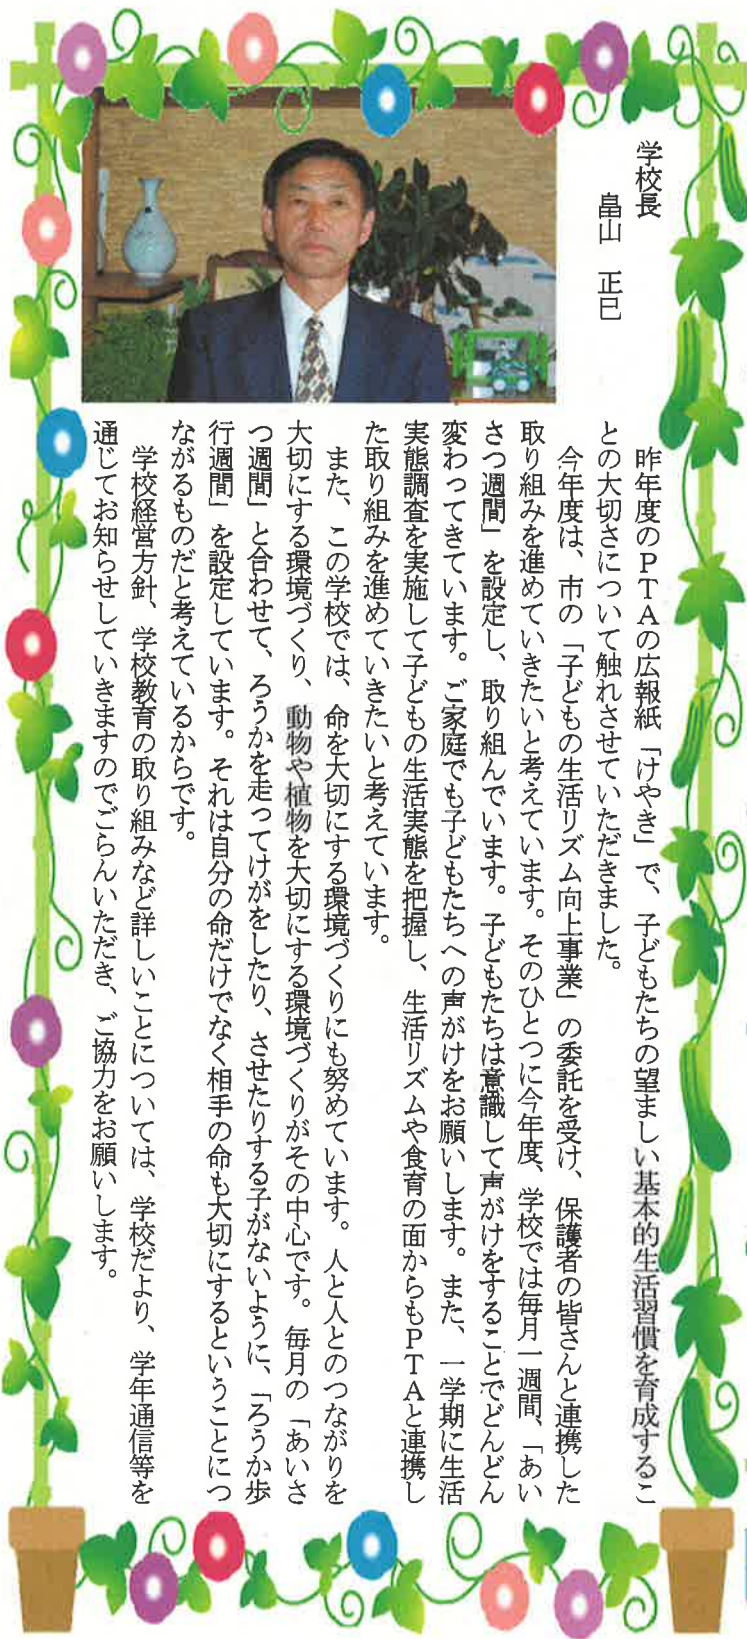 学校長
畠山　正巳
　昨年度のＰＴＡの広報紙「けやき」で、子どもたちの望ましい基本的生活習慣を育成するこ
との大切さについて触れさせていただきました。
　今年度は、市の「子どもの生活リズム向上事業」の委託を受け、保護者の皆さんと連携した
取り組みを進めていきたいと考えています。そのひとつに今年度、学校では毎月一週間、「あい
さつ週間」を設定し、取り組んでいます。子どもたちは意識して声がけをすることでどんどん
変わってきています。ご家庭でも子どもたちへの声がけをお願いします。また、一学期に生活
実態調査を実施して子どもの生活実態を把握し、生活リズムや食育の面からもＰＴＡと連携し
た取り組みを進めていきたいと考えています。
　また、この学校では、命を大切にする環境づくりにも努めています。人と人とのつながりを
大切にする環境づくり、動物や植物を大切にする環境づくりがその中心です。毎月の「あいさ
つ週間」と合わせて、ろうかを走ってけがをしたり、させたりする子がないように、「ろうか歩
行週間」を設定しています。それは自分の命だけでなく相手の命も大切にするということにつ
ながるものだと考えているからです。
　学校経営方針、学校教育の取り組みなど詳しいことについては、学校だより、学年通信等を
通じてお知らせしていきますのでごらんいただき、ご協力をお願いします。